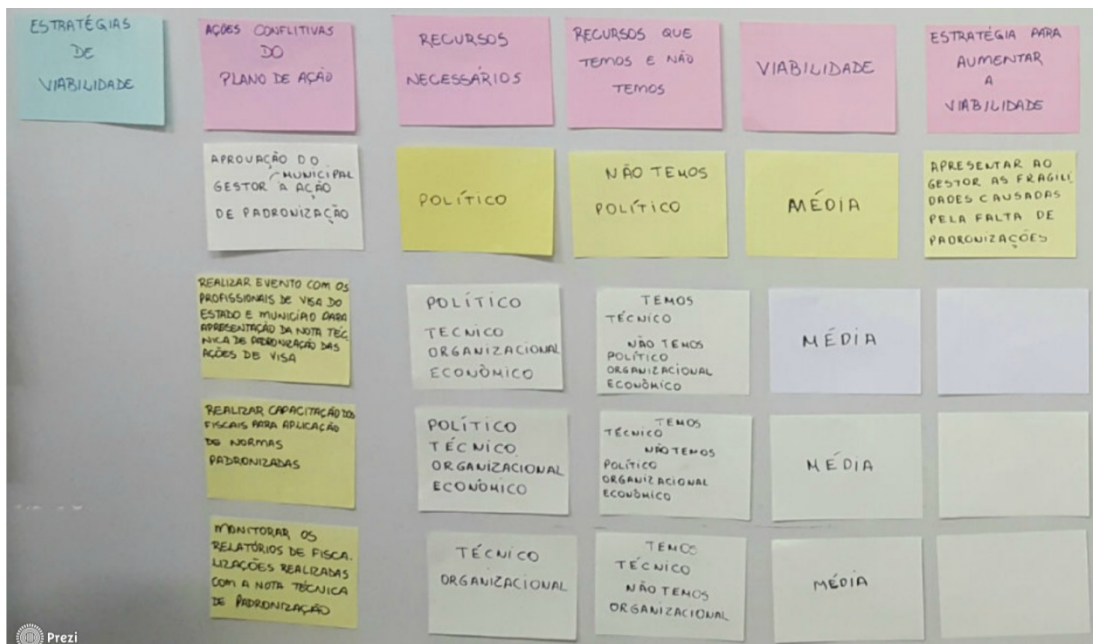 ESTRATÉGIAS
DE
VIABILIDADE
AÇÕES CONFLITIVAS
DO
PLANO DE AÇÃO
RECURSOS
NECESSÁRIOS
RECURSOS QUE
TEMOS E NÃO
TEMOS
VIABILIDADE
ESTRATÉGIA PARA
AUMENTAR
A
VIABILIDADE
APROVAÇÃO DO
MUNICIPAL
GESTOR A AÇÃO
DE PADRONIZAÇÃO
POLÍTICO
NÃO TEMOS
POLÍTICO
MÉDIA
APRESENTAR AO
GESTOR AS FRAGILI
DADES CAUSADAS
PELA FALTA DE
PADRONIZAÇÕES
REALIZAR EVENTO COM OS
PROFISSIONAIS DE VISA DO
ESTADO E MUNICÍPIO PARA
APRESENTAÇÃO DA NOTA TÉC
NICA DE PADRONIZAÇÃO DAS
AÇÕES DE VISA
POLÍTICO
TECNICO
ORGANIZACIONAL
ECONÔMICO
TEMOS
TÉCNICO
NÃO TEMOS
POLÍTICO
ORGANIZACIONAL
ECONÔMICO
MÉDIA
REALIZAR CAPACITAÇÃO DOS
FISCAIS PARA APLICAÇÃO
DE NORMAS
PADRONIZADAS
POLÍTICO
TÉCNICO
ORGANIZACIONAL
ECONÔMICO
TEMOS
TÉCNICO
NÃO TEMOS
POLÍTICO
ORGANIZACIONAL
ECONÔMICO
MÉDIA
MONITORAR OS
RELATÓRIOS DE FISCA.
LIZAÇÕES REALIZADAS
COM A NOTA TÉCNICA
DE PADRONIZAÇÃO
TÉCNICO
ORGANIZACIONAL
TEMOS
TÉCNICO
NÃO TEMOS
ORGANIZACIONAL
MÉDIA
Prezi